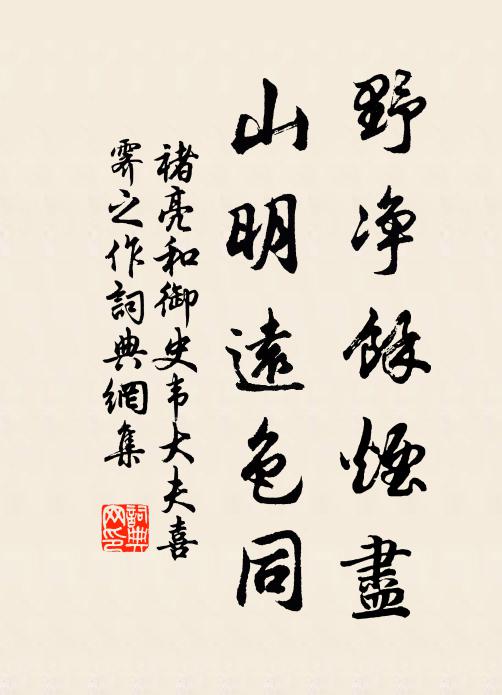 野净餘煙盡
山明遠色同
褚亮和御史韦大夫喜
霽之作詞典網集
詞典
网印